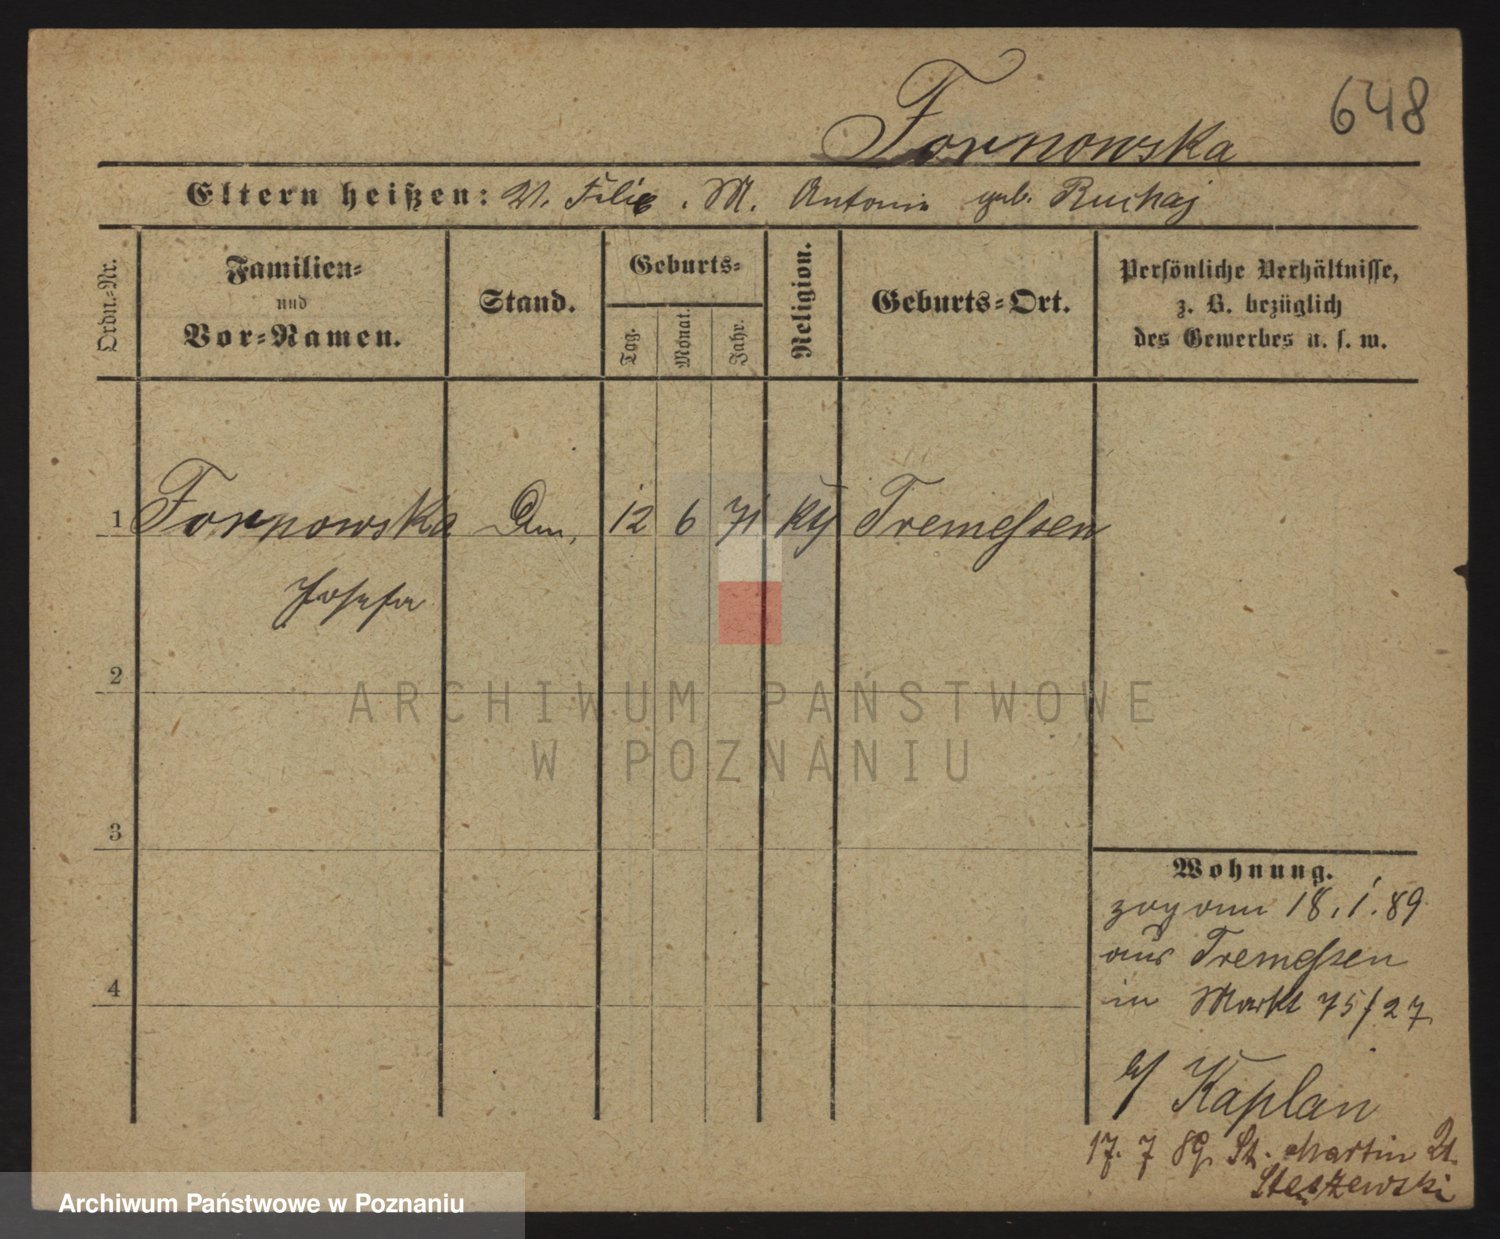 648
Fornowska
Eltern heißen: V. Felix. M. Antonie geb. Ruchaj
Ordn.-Nr.
Familien- und Vor-Namen.
Stand.
Geburts-
Tag. Monat. Jahr.
Religion.
Geburts-Ort.
Persönliche Verhältnisse,
z. B. bezüglich
des Gewerbes u. s. w.
1 Fornowska 12 6 71 Kth Tremessen
Josefa
2
3
4
Wohnung.
zog am 18.1.89
aus Tremessen
in Markt 75/27
b/ Kaplan
17. 7 89. St. Martin 21.
Stęszewski
ARCHIWUM PAŃSTWOWE
W POZNANIU
Archiwum Państwowe w Poznaniu